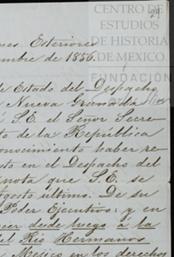 CENTRO DE
ESTUDIOS
DE HISTORIA
DE MEXICO
FUNDACIÓN
Exteriores
embre de 1856.
de Estado del Despacho
Nueva Granada
S.E. el Señor Secre
to de la República
conocimiento haber re
esto en el Despacho del
nota que S.E. se
Agosto ultimo. De su
Poder Ejecutivo: y en
desde luego á la
del Rio Hermanos
Mexico en los derechos